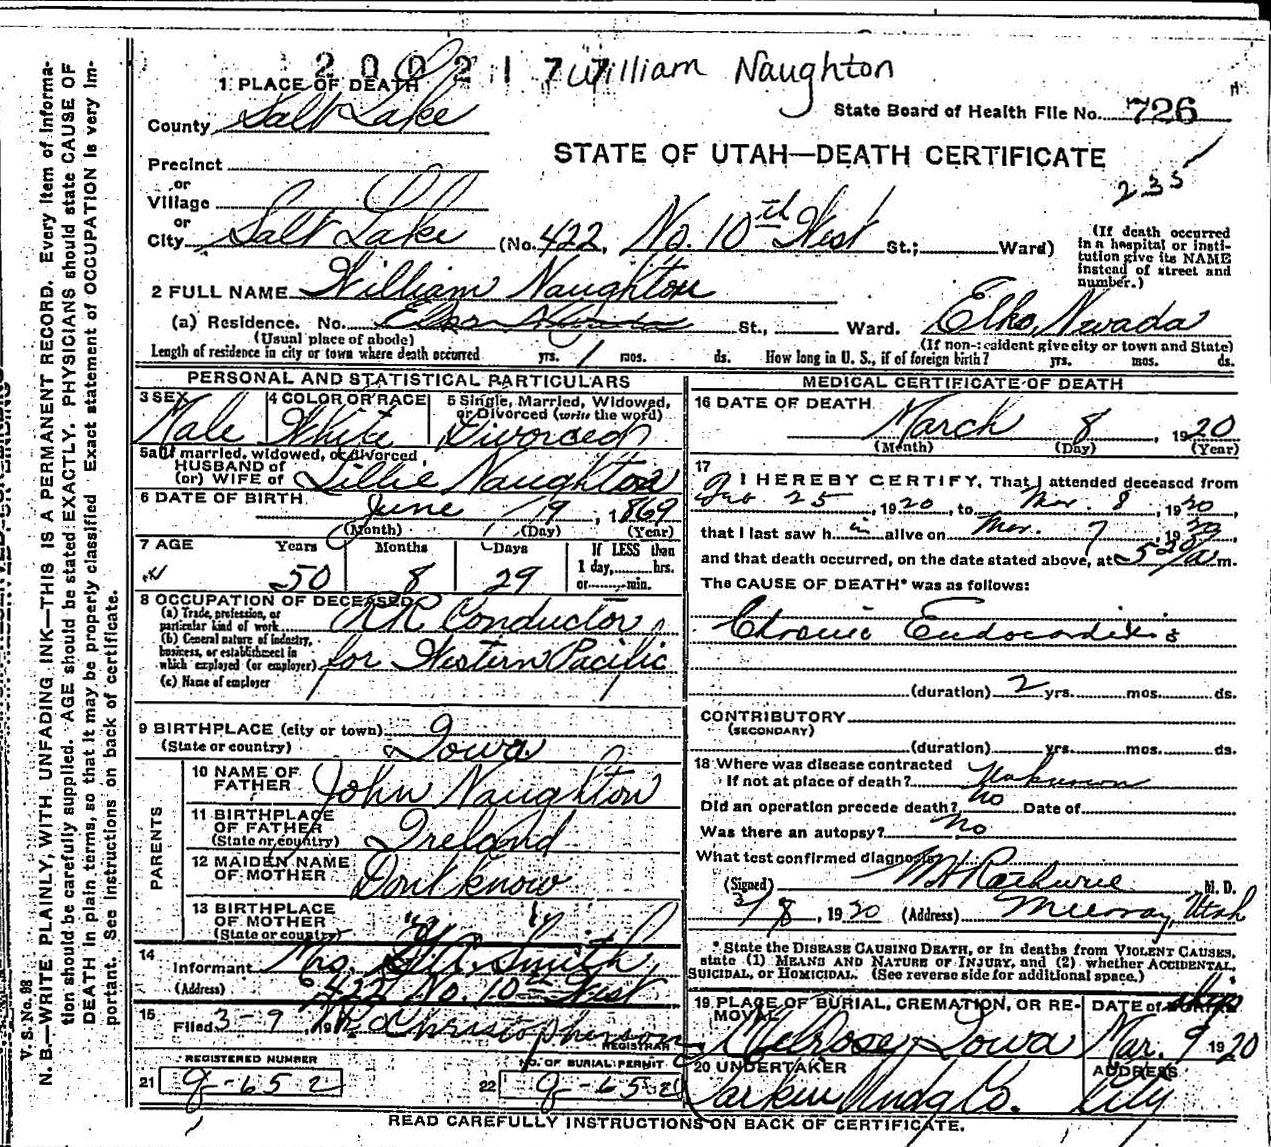 2 0 0 2 1 7 7 William Naughton
1 PLACE OF DEATH
County Salt Lake
State Board of Health File No. 726
STATE OF UTAH—DEATH CERTIFICATE
235
Precinct
or
Village
or
City Salt Lake (No. 422, No. 10th West St.; Ward)
(If death occurred in a hospital or institution give its NAME instead of street and number.)
2 FULL NAME William Naughton
(a) Residence. No. Elko Nevada St., Ward. Elko, Nevada
(Usual place of abode) (If non-resident give city or town and State)
Length of residence in city or town where death occurred yrs. 1 mos. ds. How long in U. S., if of foreign birth? yrs. mos. ds.
PERSONAL AND STATISTICAL PARTICULARS
3 SEX Male
4 COLOR OR RACE White
5 Single, Married, Widowed, or Divorced (write the word) Divorced
5a If married, widowed, or divorced
HUSBAND of
(or) WIFE of Lillie Naughton
6 DATE OF BIRTH June 19, 1869
(Month) (Day) (Year)
7 AGE Years Months Days If LESS than
50 8 29 1 day, hrs.
or min.
8 OCCUPATION OF DECEASED
(a) Trade, profession, or particular kind of work RR Conductor
(b) General nature of industry, business, or establishment in which employed (or employer) for Western Pacific
(c) Name of employer
9 BIRTHPLACE (city or town)
(State or country) Iowa
PARENTS
10 NAME OF FATHER John Naughton
11 BIRTHPLACE OF FATHER (State or country) Ireland
12 MAIDEN NAME OF MOTHER Dont know
13 BIRTHPLACE OF MOTHER (State or country) " "
14 Informant Mrs. Smith
(Address) 422 No 10th West
15 Filed 3-9, 19 Christopherson
REGISTRAR
REGISTERED NUMBER
21 g-652
NO. OF BURIAL PERMIT
22 g-652
MEDICAL CERTIFICATE OF DEATH
16 DATE OF DEATH March 8, 1920
(Month) (Day) (Year)
17 I HEREBY CERTIFY, That I attended deceased from
25, 1920, to Mar. 8, 1920,
that I last saw h im alive on Mar. 7 1920,
and that death occurred, on the date stated above, at 5 20 a m.
The CAUSE OF DEATH* was as follows:
Chronic Endocarditis
(duration) 2 yrs. mos. ds.
CONTRIBUTORY
(SECONDARY)
(duration) yrs. mos. ds.
18 Where was disease contracted
If not at place of death? Unknown
Did an operation precede death? no Date of
Was there an autopsy? no
What test confirmed diagnosis?
(Signed) M. D.
3/8, 1920 (Address) Murray, Utah
* State the DISEASE CAUSING DEATH, or in deaths from VIOLENT CAUSES, state (1) MEANS AND NATURE OF INJURY, and (2) whether ACCIDENTAL, SUICIDAL, or HOMICIDAL. (See reverse side for additional space.)
19 PLACE OF BURIAL, CREMATION, OR REMOVAL Melrose, Iowa
DATE of Mar. 9 1920
20 UNDERTAKER Larkin Undg Co.
ADDRESS City
READ CAREFULLY INSTRUCTIONS ON BACK OF CERTIFICATE.
V. S. No. 98
N. B.—WRITE PLAINLY, WITH UNFADING INK—THIS IS A PERMANENT RECORD. Every item of information should be carefully supplied. AGE should be stated EXACTLY. PHYSICIANS should state CAUSE OF DEATH in plain terms, so that it may be properly classified. Exact statement of OCCUPATION is very important. See instructions on back of certificate.